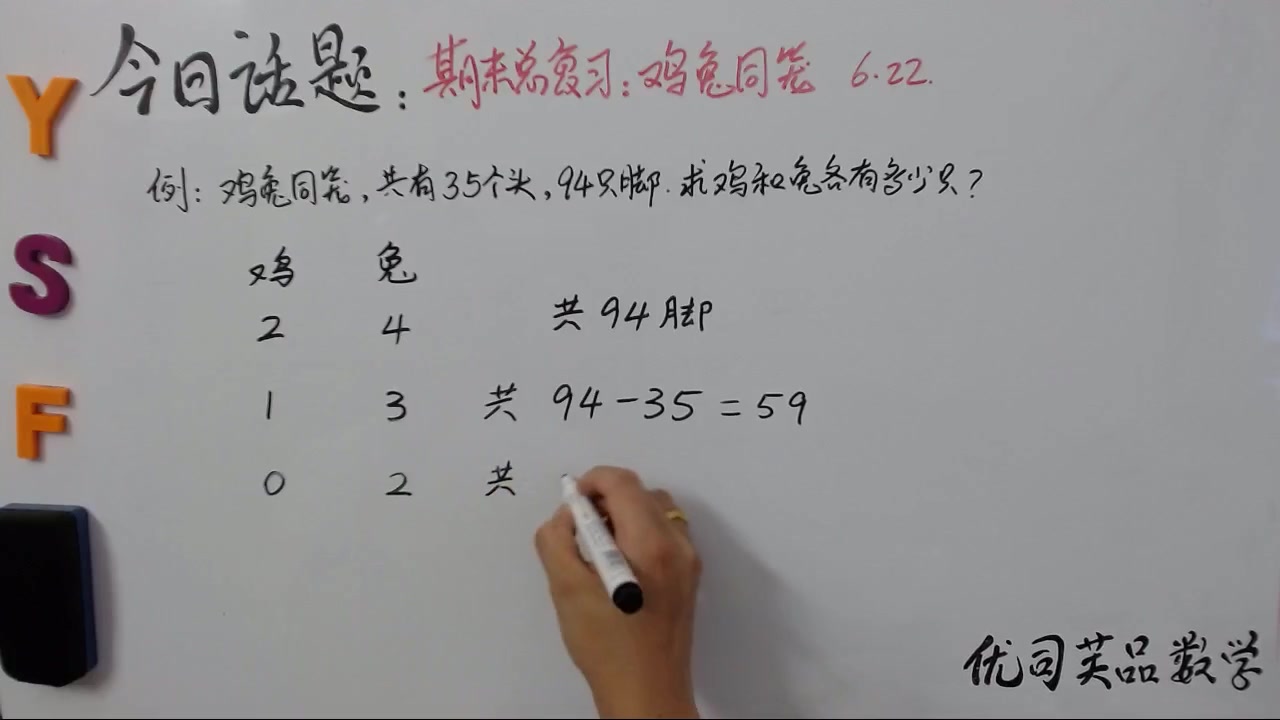 今日话题：期末总复习：鸡兔同笼 6.22.
例：鸡兔同笼，共有35个头，94只脚.求鸡和兔各有多少只？
鸡 兔
2 4 共 94脚
1 3 共 94-35=59
0 2 共
Y
S
F
优司芙品数学